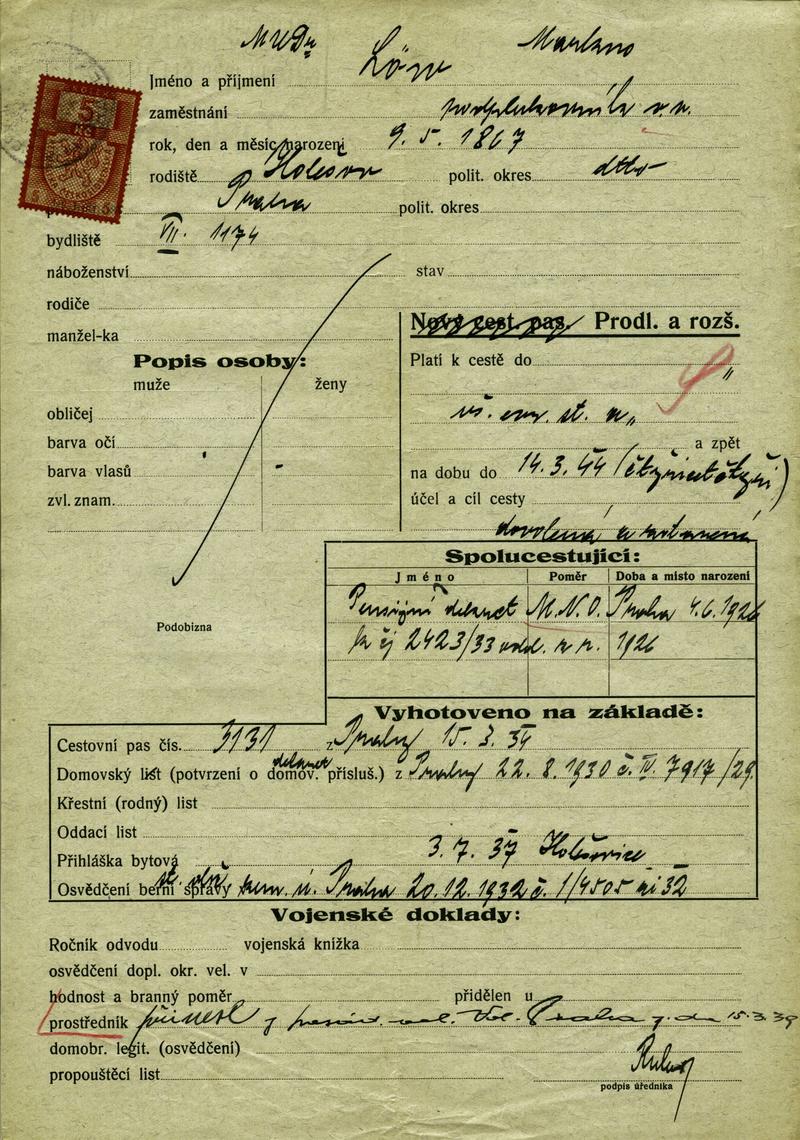 MUDr Löw
Jméno a příjmení
5
zaměstnání podplukovník v. v.
rok, den a měsíc narození 9. 5. 1867
rodiště Holešov polit. okres dtto
Praha polit. okres
bydliště VII. 1174
náboženství stav
rodiče
manžel-ka
Nový cest. pas. Prodl. a rozš.
Popis osoby:
muže ženy
obličej
barva očí
barva vlasů
zvl. znam.
Podobizna
Platí k cestě do
vš. evr. st. a zpět
na dobu do 14. 3. 44 (čtyřicetčtyři)
účel a cíl cesty
dovolená a
Spolucestující:
Jméno Poměr Doba a místo narození
Pensijní dekret M.N.O. Praha 4. 6. 1926
k čj 2423/33 odd. 1926
Vyhotoveno na základě:
Cestovní pas čís. 3131 z Prahy 15. 3. 34
dekret
Domovský list (potvrzení o domov. přísluš.) z Prahy 22. 8. 1930 č. IV. 7917/29
Křestní (rodný) list
Oddací list
Přihláška bytová 3. 7. 37 Holešovice
Osvědčení berní správy Praha 20. 12. 1932 č. 1/4505 32
Vojenské doklady:
Ročník odvodu vojenská knížka
osvědčení dopl. okr. vel. v
hodnost a branný poměr přidělen u
prostředník přinesl vel. Praha z. dn 15. 3. 39
domobr. legit. (osvědčení)
propouštěcí list
podpis úředníka